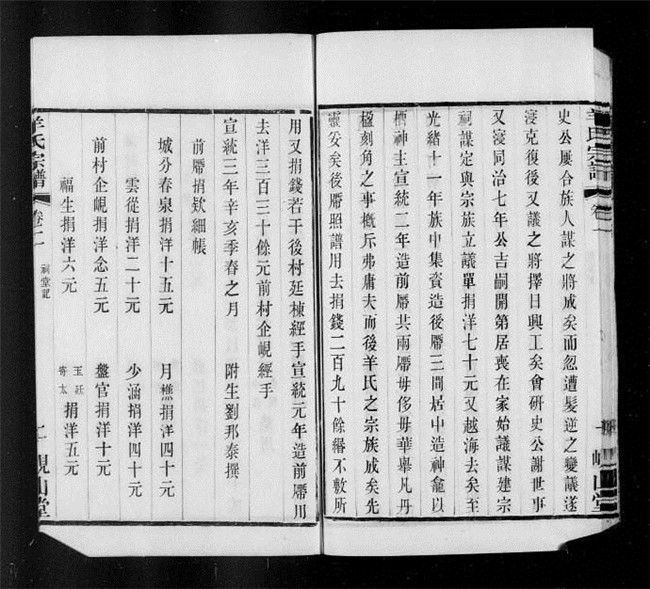 史公屢合族人謀之將成矣而忽遭髮逆之變議遂
寖克復後又議之將擇日興工矣會研史公謝世事
又寖同治七年公吉嗣開第居喪在家始議謀建宗
祠謀定與宗族立議單捐洋七十元又越海去矣至
光緒十一年族中集資造後厝三間居中造神龕以
栖神主宣統二年造前厝共兩厝毋侈毋華舉凡丹
楹刻角之事概斥弗庸夫而後羊氏之宗族成矣先
靈妥矣後厝照譜用去捐錢二百九十餘緡不敷所
羊氏宗譜
卷二
一
峴山堂
用又捐錢若干後村廷棟經手宣統元年造前厝用
去洋三百三十餘元前村企峴經手
宣統三年辛亥季春之月 附生劉邦泰撰
前厝捐欵細帳
城分春泉捐洋十五元 月樵捐洋四十元
雲從捐洋二十元 少涵捐洋四十元
前村企峴捐洋念五元 盤官捐洋十元
福生捐洋六元 捐洋五元
羊氏宗譜
卷二
祠堂記
二
峴山堂